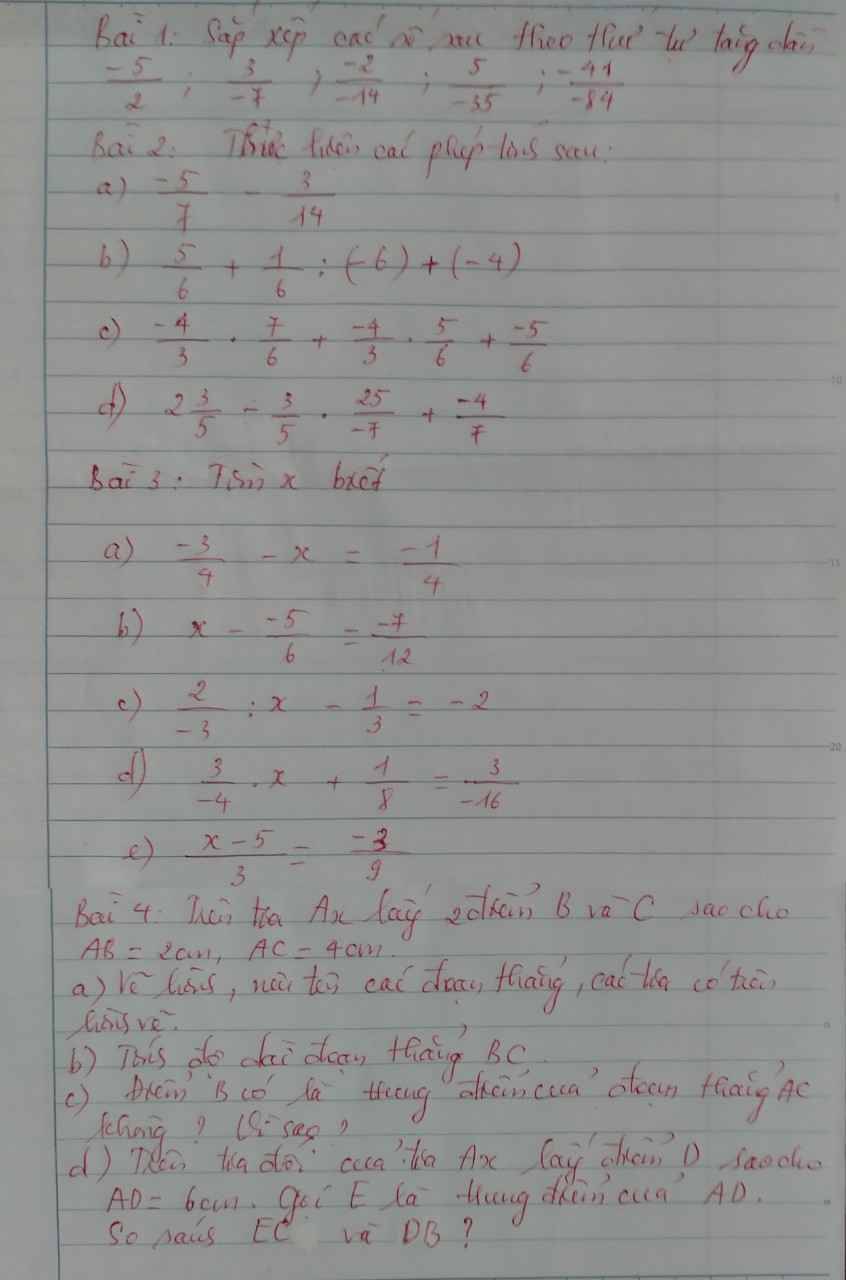 Bài 1: Sắp xếp các số sau theo thứ tự tăng dần
-5/2 ; 3/-7 ; -2/-14 ; 5/-35 ; -41/-84
Bài 2: Thực hiện các phép tính sau:
a) -5/7 - 3/14
b) 5/6 + 1/6 : (-6) + (-4)
c) -4/3 . 7/6 + -4/3 . 5/6 + -5/6
d) 2 3/5 - 3/5 . 25/-7 + -4/7
Bài 3: Tìm x biết
a) -3/4 - x = -1/4
b) x - -5/6 = -7/12
c) 2/-3 : x - 1/3 = -2
d) 3/-4 . x + 1/8 = 3/-16
e) x-5/3 = -3/9
Bài 4: Trên tia Ax lấy 2 điểm B và C sao cho
AB = 2cm, AC = 4cm.
a) Vẽ hình, nêu tên các đoạn thẳng, các tia có trên
hình vẽ.
b) Tính độ dài đoạn thẳng BC.
c) Điểm B có là trung điểm của đoạn thẳng AC
không? Vì sao?
d) Trên tia đối của tia Ax lấy điểm D sao cho
AD = 6cm. Gọi E là trung điểm của AD.
So sánh EC và DB?